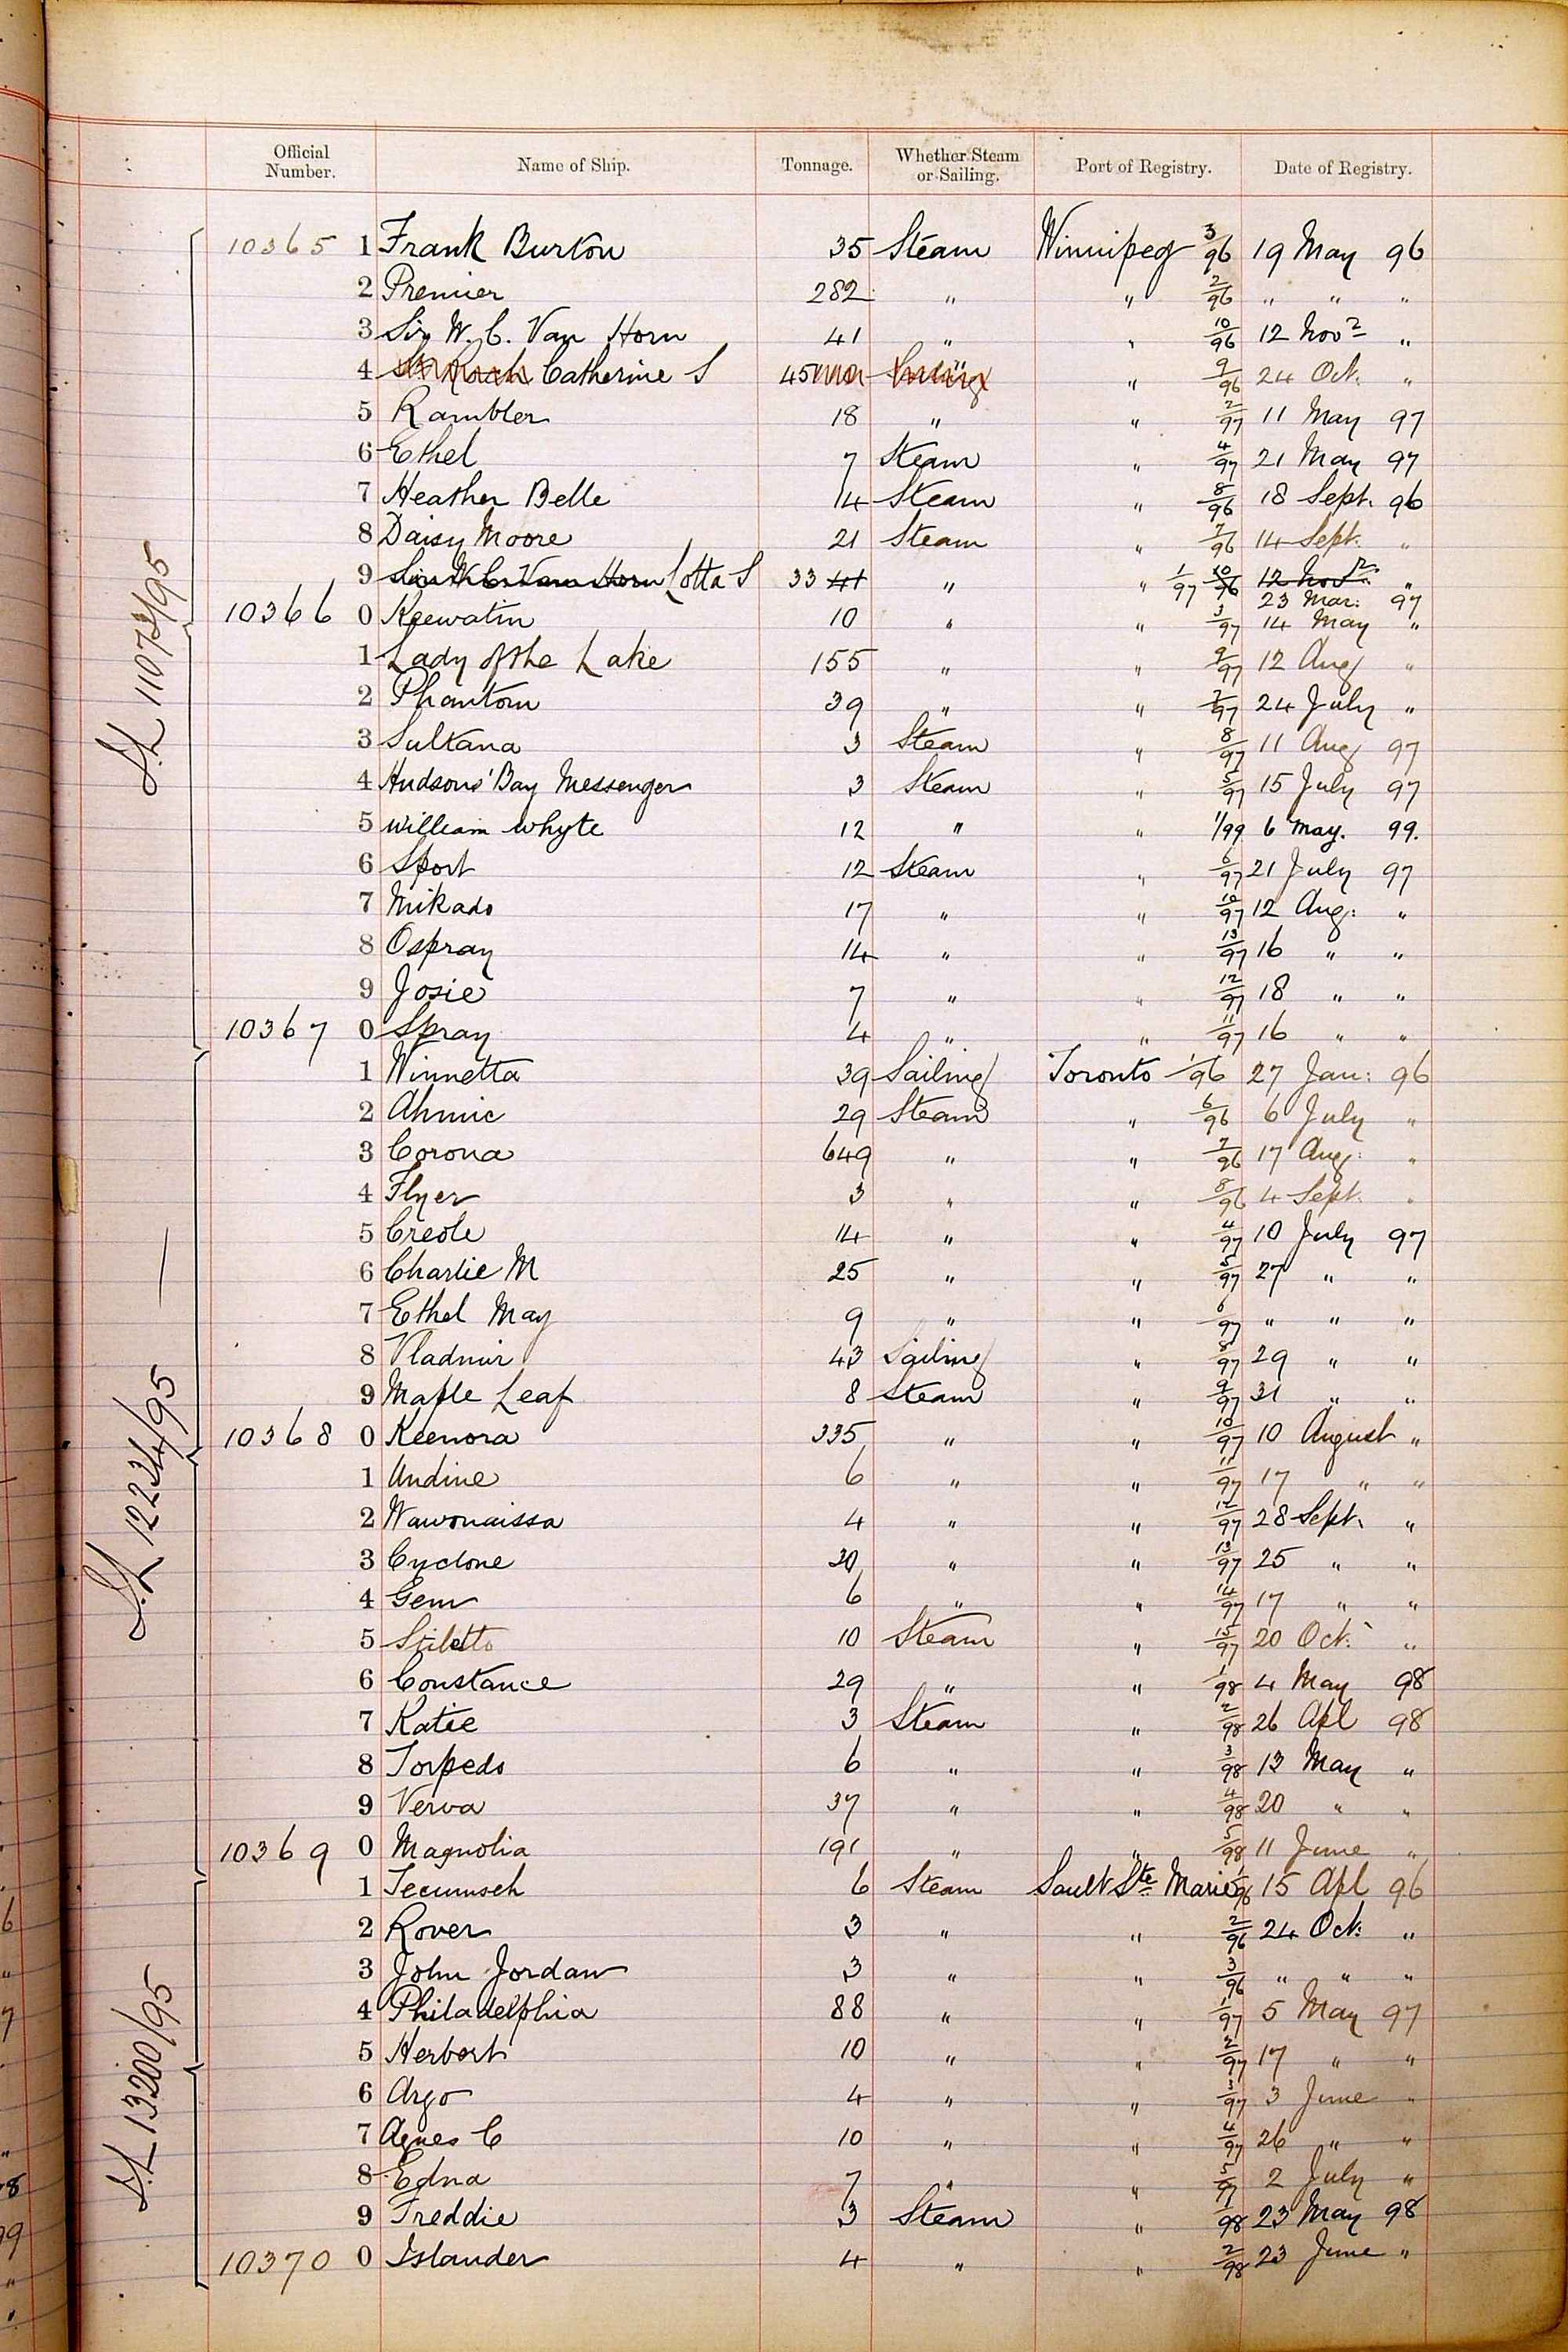 Official Number. Name of Ship. Tonnage. Whether Steam or Sailing. Port of Registry. Date of Registry.
10365 1 Frank Burton 35 Steam Winnipeg 3/96 19 May 96
2 Premier 282 " " 2/96 " " "
3 Sir W. C. Van Horn 41 " " 10/96 12 Nov "
4 Catherine S 45 " " 9/96 24 Oct. "
5 Rambler 18 " " 2/97 11 May 97
6 Ethel 7 Steam " 4/97 21 May 97
7 Heather Belle 14 Steam " 8/96 18 Sept. 96
8 Daisy Moore 21 Steam " 7/96 14 Sept. "
9 Sir W. C. Van Horn Lotta S 33 41 " " 1/97 10/96 12 Nov "
23 Mar: 97
10366 0 Keewatin 10 " " 3/97 14 May "
1 Lady of the Lake 155 " " 9/97 12 Aug "
2 Phantom 39 " " 7/97 24 July "
3 Sultana 3 Steam " 8/97 11 Aug 97
4 Hudsons' Bay Messenger 3 Steam " 5/97 15 July 97
5 William Whyte 12 " " 1/99 6 May. 99.
6 Sport 12 Steam " 6/97 21 July 97
7 Mikado 17 " " 10/97 12 Aug: "
8 Ospray 14 " " 13/97 16 " "
9 Josie 7 " " 12/97 18 " "
10367 0 Spray 4 " " 11/97 16 " "
1 Winnetta 39 Sailing Toronto 1/96 27 Jan: 96
2 Ahmic 29 Steam " 6/96 6 July "
3 Corona 649 " " 7/96 17 Aug: "
4 Flyer 3 " " 8/96 4 Sept. "
5 Creole 14 " " 4/97 10 July 97
6 Charlie M 25 " " 5/97 27 " "
7 Ethel May 9 " " 6/97 " " "
8 Vladmir 43 Sailing " 8/97 29 " "
9 Maple Leaf 8 Steam " 9/97 31 " "
10368 0 Keenora 335 " " 10/97 10 August "
1 Undine 6 " " 11/97 17 " "
2 Wawonaissa 4 " " 12/97 28 Sept. "
3 Cyclone 30 " " 13/97 25 " "
4 Gem 6 " " 14/97 17 " "
5 Stiletto 10 Steam " 15/97 20 Oct: "
6 Constance 29 " " 1/98 4 May 98
7 Katie 3 Steam " 2/98 26 Apl 98
8 Torpedo 6 " " 3/98 13 May "
9 Verva 37 " " 4/98 20 " "
10369 0 Magnolia 191 " " 5/98 11 June "
1 Tecumseh 6 Steam Sault Ste Marie 1/96 15 Apl 96
2 Rover 3 " " 2/96 24 Oct: "
3 John Jordan 3 " " 3/96 " " "
4 Philadelphia 88 " " 1/97 5 May 97
5 Herbert 10 " " 2/97 17 " "
6 Argo 4 " " 3/97 3 June "
7 Agnes C 10 " " 4/97 26 " "
8 Edna 7 " " 5/97 2 July "
9 Freddie 3 Steam " 1/98 23 May 98
10370 0 Islander 4 " " 2/98 23 June "
11073/95
12234/95
13200/95